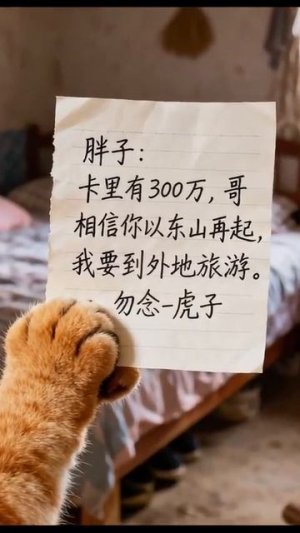 胖子:
卡里有300万,哥
相信你以东山再起,
我要到外地旅游。
勿念-虎子